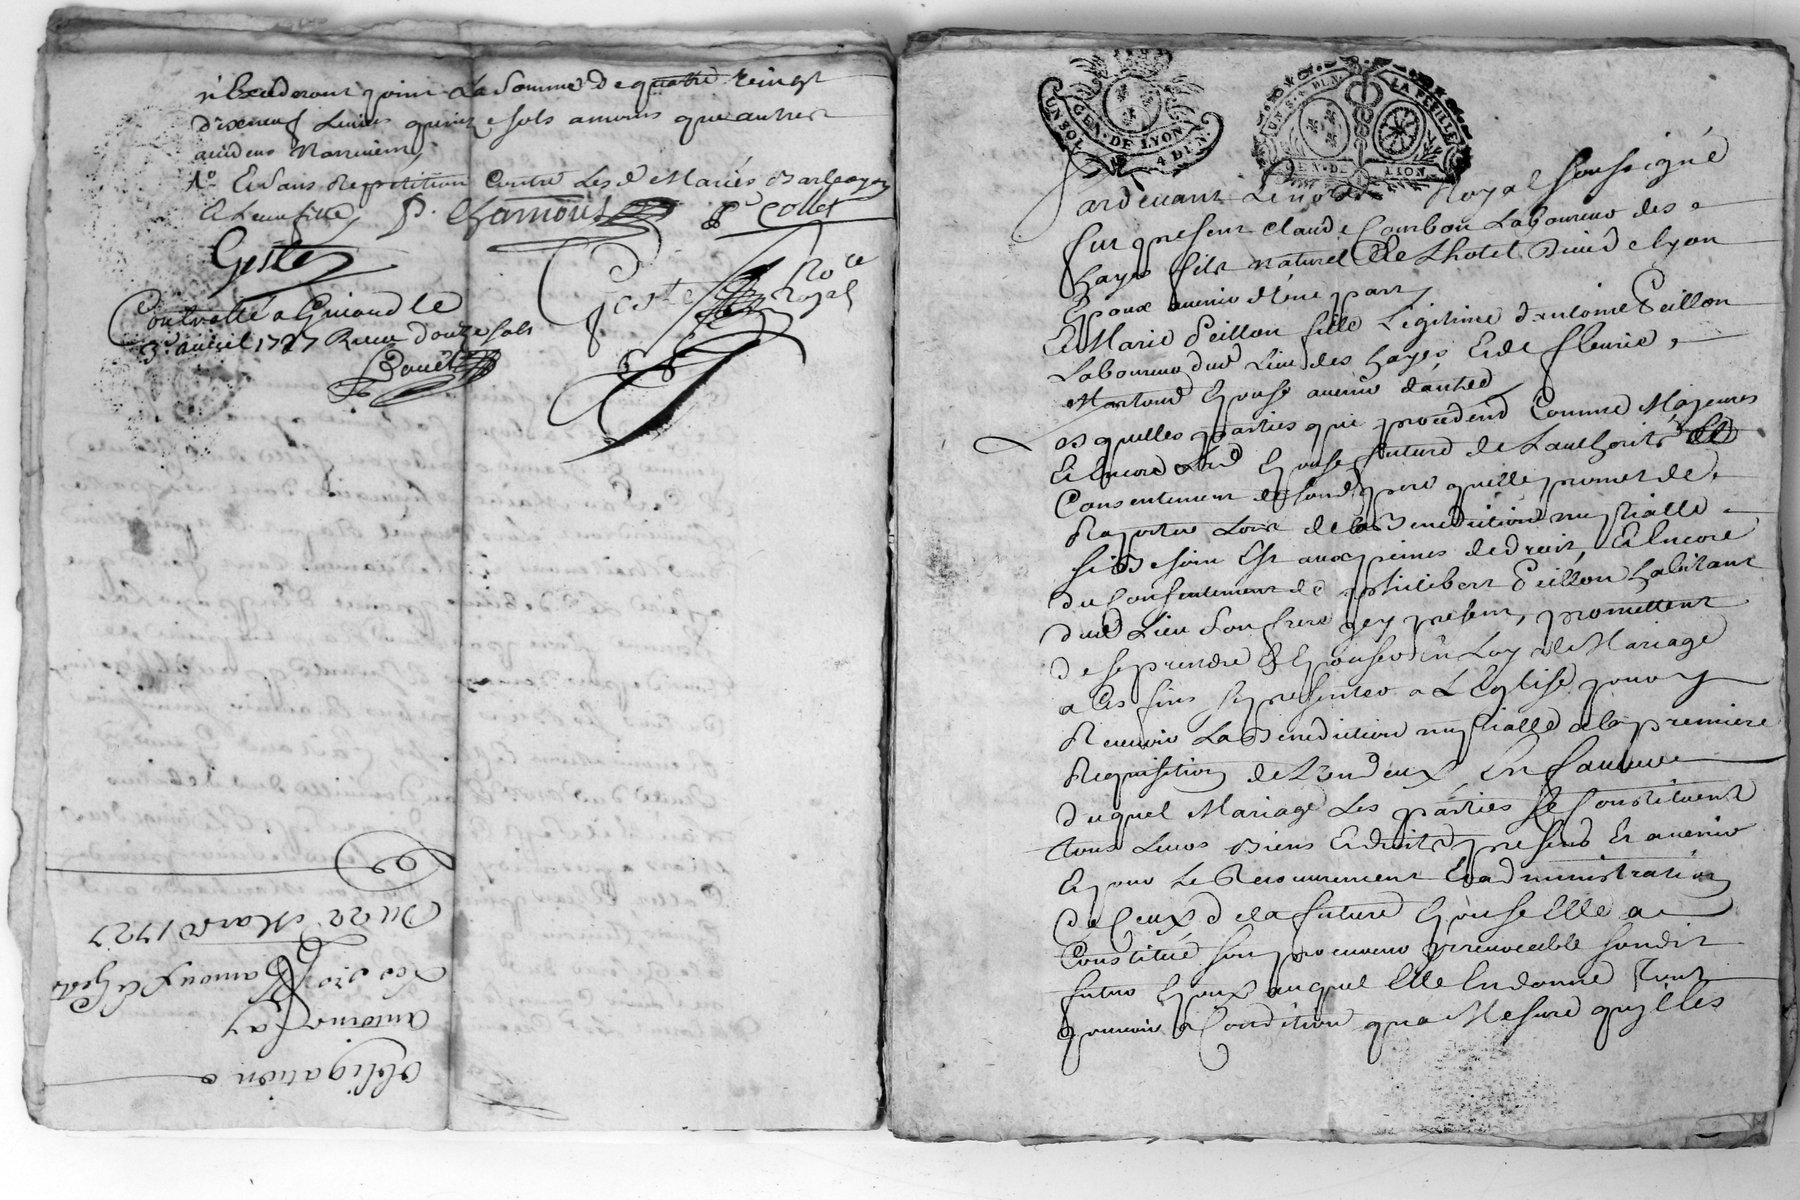 n'Excederont point La Somme de quatre Vingt
dixneuf Livres quinze sols amoins que autres
Et Sans Repetition Contre Les d Mariés
Et Leur fille P. Chamoux Collet
Geste
Geste No re Royal
Controllé a Grand le
3e avril 1727 Receu douze sols
Du 22 Mars 1727
antoine Gay
obligation
UN SOL GEN. DE LYON 4 DEN.
LA FEUILLE
GEN. DE LION
Pardevant Le no Royal soussigné
fut present claude Courbon Laboureur des
hayes fils naturel de Lhotel Dieu de Lyon
Epoux avenir d'une part
Et Marie Peillon fille Legitime d'antoine Peillon
Laboureur dud Lieu des hayes Et de fleurie
Espouse avenir d'autre
Lesquelles parties qui procedent Comme Majeures
Et Encore Lad Epouse future de Lauthorité
Consentement de sond pere quelle promet de
Raporter Lors de la Benediction nuptialle
si Besoin Est aux peines de droit, Et Encore
du Consentement de philibert Peillon habitant
dud Lieu Son frere icy present, promettent
de se prendre & Epouser En Loy de Mariage
a Ces fins se presenter a L'Eglise pour y
Recevoir La Benediction nuptialle a la premiere
Requisition de L'un d'eux, En faveur
duquel Mariage Les parties se Constituent
tous Leurs Biens Et droits presens Et avenir
Et pour Le Recouvrement Et administration
de Ceux de la future Epouse Elle a
Constitué son procureur irrevocable sondit
futur Epoux auquel Elle En donne Tout
pouvoir a Condition qua Mesure quil Les